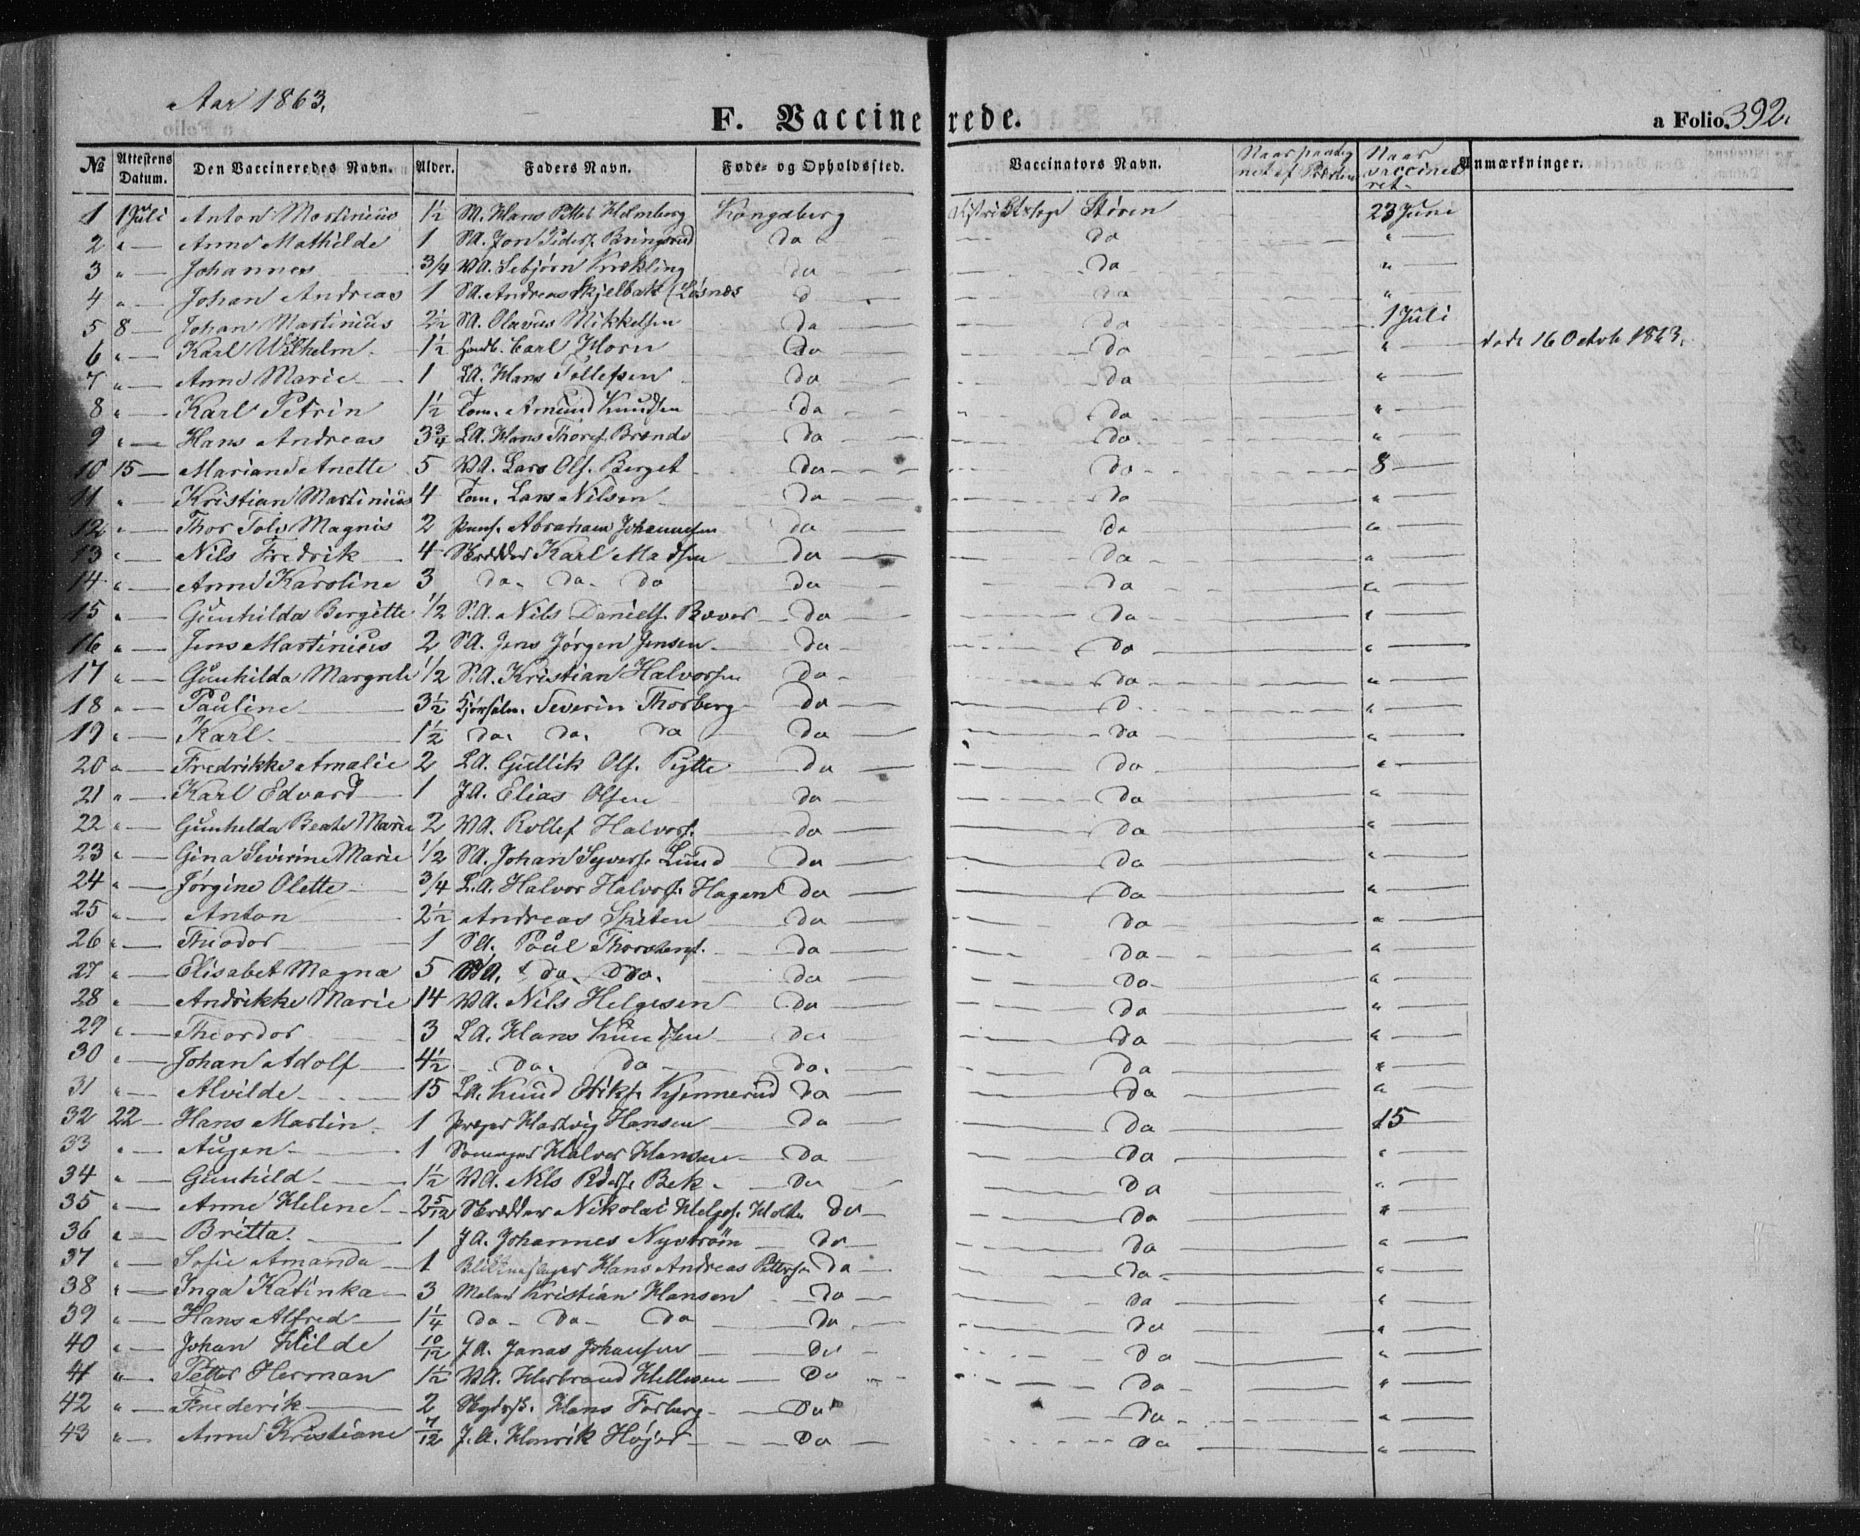 Aar 1863.
F. Vaccinerede.
a Folio 392.
№ Attestens Datum. Den Vaccineredes Navn. Alder. Faders Navn. Føde- og Opholdssted. Vaccinators Navn. Naar Naar vaccineret. Anmærkninger.
1 1 Juli Anton Martinius 1½ SA. Hans Petter Holmberg Kongsberg Støren 23 Juni
2 " — Anne Mathilde 1 SA. Jon Peders. Bringsrud do do "
3 " — Johannes 3/4 WA. Sebjørn Krekling do do "
4 " — Johan Andreas 1 SA. Andreas Skjelbæk d do "
5 8 — Johan Martinius 2½ SA. Olavus Mikkelsen do do 1 Juli
6 " — Karl Wilhelm 1½ Carl Horn do do " døde 16 Octob 1863.
7 " — Anne Marie 1 LA. Hans Tollefsen do do "
8 " — Karl Petrin 1½ Tom. Amund Knudsen do do "
9 " — Hans Andreas 3¾ LA. Hans Thores. Brende do do "
10 15 — Mariane Anette 5 WA. Lars Ols. Berget do do 8 —
11 " Kristian Martinius 4 Tom. Lars Nilsen do do "
12 " — Thor Tolv Magnis 2 Pens. Abraham Johannesen do do "
13 " Nils Fredrik 4 Skrædder Karl Madsen do do "
14 " — Anne Karoline 3 do. do. do do do "
15 " Gunhilda Bergitte ½ S.A. Nils Daniels. Bæver do do "
16 " — Jens Martinius 2 SA. Jens Jørgen Jensen do do "
17 " — Gunhilda Margrete ½ S.A. Kristian Halvorsen do do "
18 " — Pauline 3½ Severin Thorberg do d "
19 " — Karl 1½ do. do. do do do "
20 " — Fredrikke Amalie 2 LA. Gullik Ols. Pytte do do "
21 " — Karl Edvard 1 JA. Elias Olsen do do "
22 " — Gunhilda Beate Marie 2 WA. Rollef Halvors. do do "
23 " — Gina Sivirine Marie ½ SA. Johan Syvers. Lund do do "
24 " — Jørgine Olette 3/4 L.A. Halvor Halvors. Hagen do do "
25 " — Anton 2½ Andreas Spiten do do "
26 " — Theodor 1 SA. Paul Thorstens. do do "
27 " — Elisabet Magna 5 do. do. do do "
28 " — Andrikke Marie 14 WA. Nils Helgesen do do "
29 " — Theordor 3 LA. Hans Knudsen do do "
30 " — Johan Adolf 4½ do. do do. do "
31 " — Alvilde 15 LA. Knud Eriks. Kjennerud do do "
32 22 — Hans Martin 1 Præger Hartvig Hansen do do 15 —
33 " — Augen 1 Halvor Hansen do do "
34 " — Gunhild 1½ WA. Nils Peders. Bek do do "
35 " — Anne Helene 2 5/12 Skrædder Nikolai Helges. Holte do do "
36 " — Britta 1 JA. Johannes Nystrøm do do "
37 " — Sofie Amanda 1 Blikkenslager Hans Andreas Petters. do do "
38 " — Inga Katinka 3 Maler Kristian Hansen do do "
39 " — Hans Alfred 1¼ do do do do do "
40 " — Johan Hilde 10/12 JA. Jonas Johansen do do "
41 " — Petter Herman 1½ WA. Herbrand Hellesen do do "
42 " — Frederik 2 Hans Forberg do do "
43 " — Anne Kristiane 7/12 J.A. Henrik Højer do do "